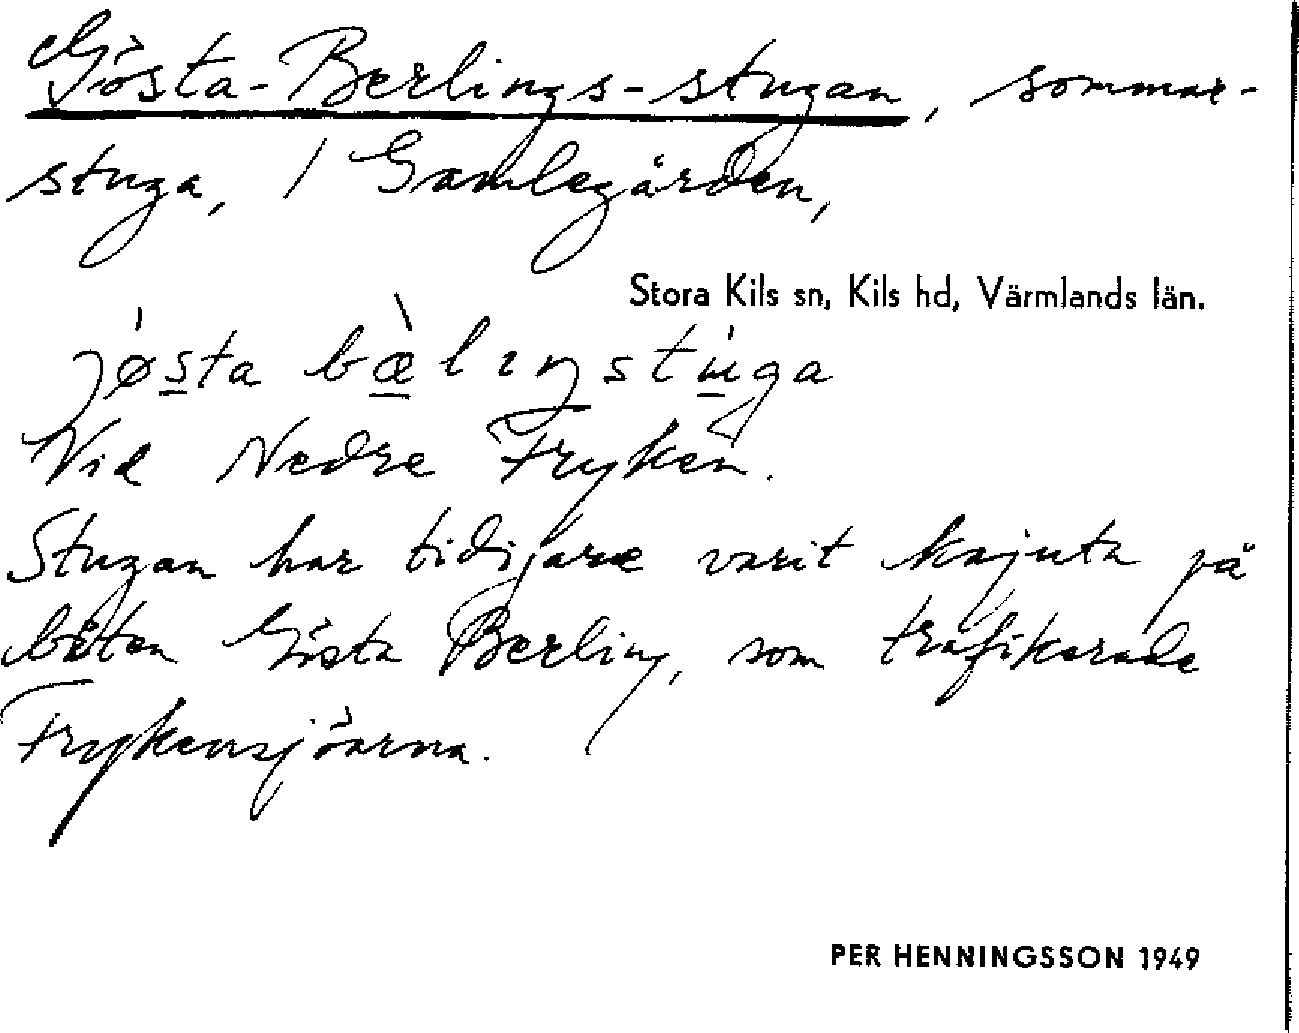 Gösta-Berlings-stugan, sommar-
stuga, / Gamlegården,
Stora Kils sn, Kils hd, Värmlands län.
jøsta bælıŋstuga
Vid Nedre Fryken.
Stugan har tidigare varit kajuta på
båten Gösta Berling, som trafikerade
Frykensjöarna.
PER HENNINGSSON 1949